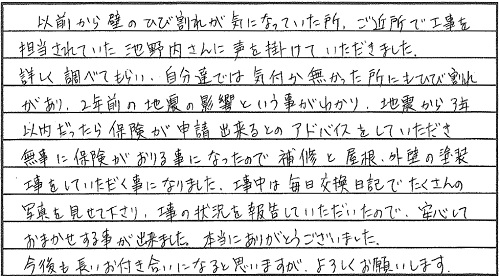 以前から壁のひび割れが気になっていた所、ご近所で工事を
担当されていた池野内さんに声を掛けていただきました。
詳しく調べてもらい、自分達では気付か無かった所にもひび割れ
があり、2年前の地震の影響という事がわかり、地震から3年
以内だったら保険が申請出来るとのアドバイスをしていただき
無事に保険がおりる事になったので補修と屋根、外壁の塗装
工事をしていただく事になりました。工事中は毎日交換日記でたくさんの
写真を見せて下さり、工事の状況を報告していただいたので、安心して
おまかせする事が出来ました。本当にありがとうございました。
今後も長いお付き合いになると思いますが、よろしくお願いします。